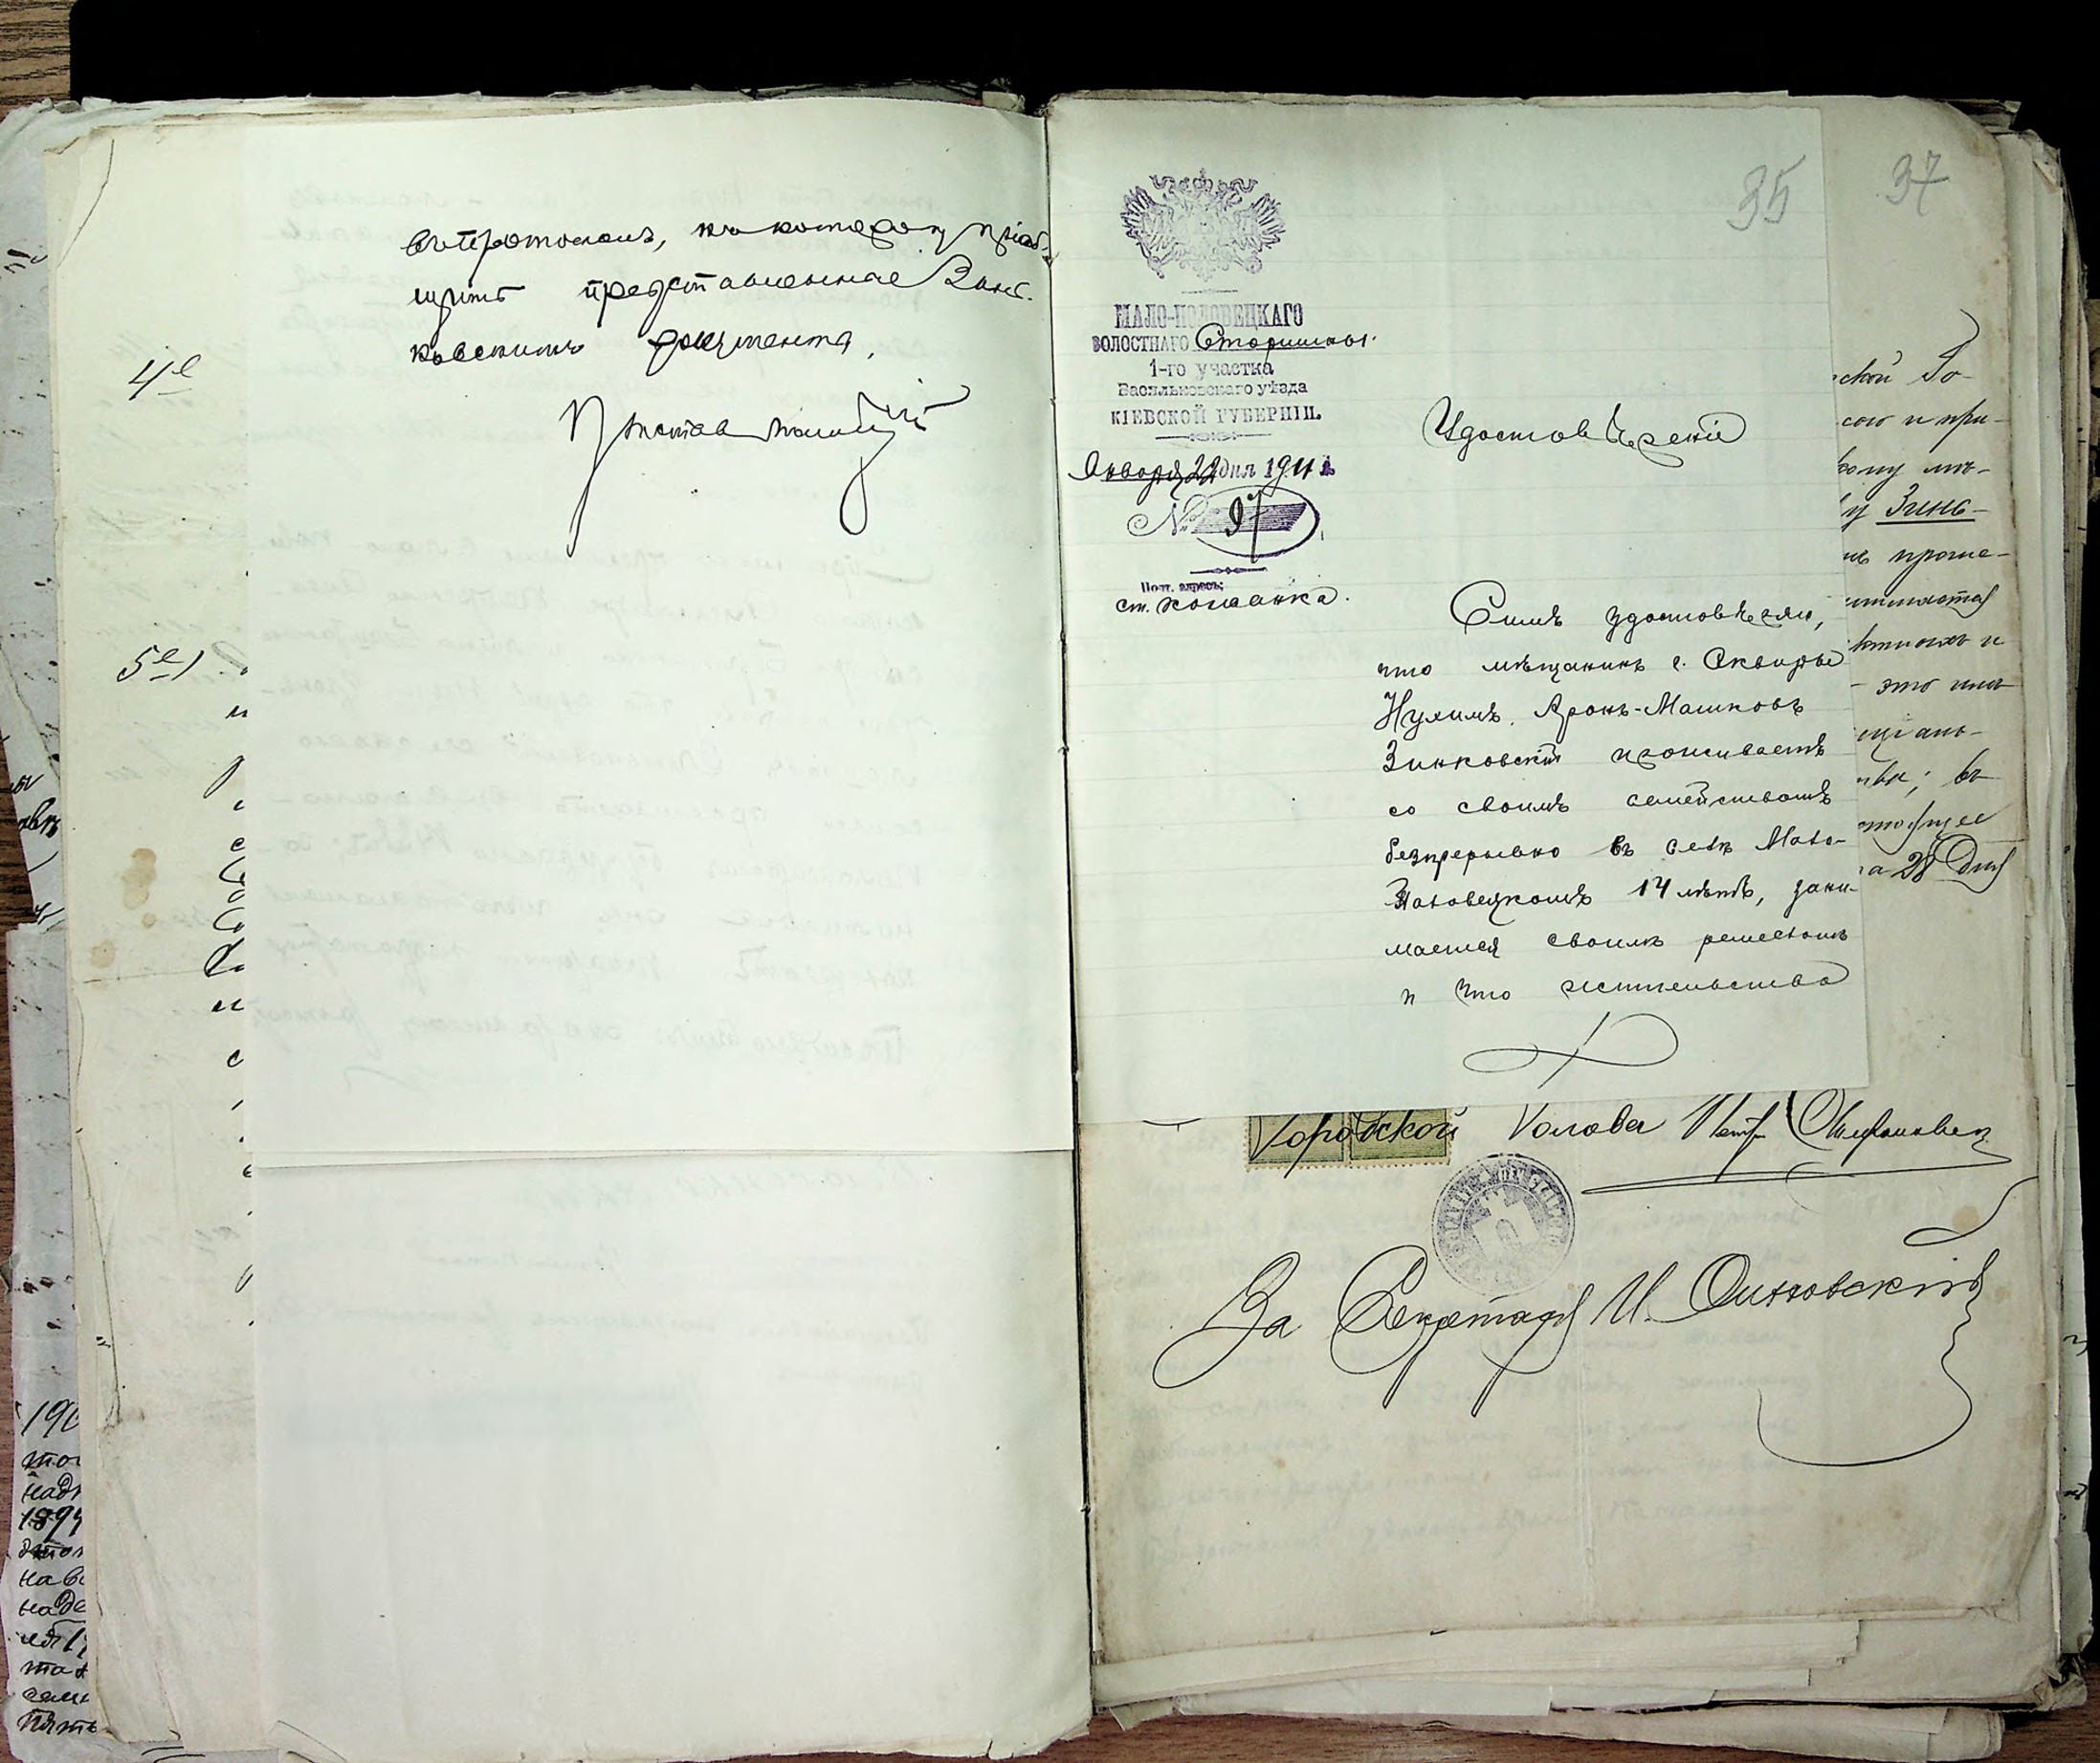 въ протоколъ, къ которому пріоб-
щить представленные Зинь-
ковскимъ документы.
Приставъ
4е
5е)
35
37
МАЛО-ПОЛОВЕЦКАГО
ВОЛОСТНАГО Старшины.
1-го участка
Васильковскаго уѣзда
КІЕВСКОЙ ГУБЕРНІИ.
Января 22 дня 1911 г.
№ 97
Почт. адресъ:
ст. Кошанка.
Удостовѣреніе
Симъ удостовѣряю,
что мѣщанинъ г. Сквиры
Нухимъ Аронъ-Машковъ
Зинковскій проживаетъ
со своимъ семействомъ
безпрерывно въ селѣ Мало-
Половецкомъ 14 лѣтъ, зани-
мается своимъ ремесломъ
и что жительства
ской Го-
сою и при-
кому мѣ-
у Зинь-
это
въ
28 Дня
Городской Голова Петр
За Секретаря И.
190
тог
1894
на